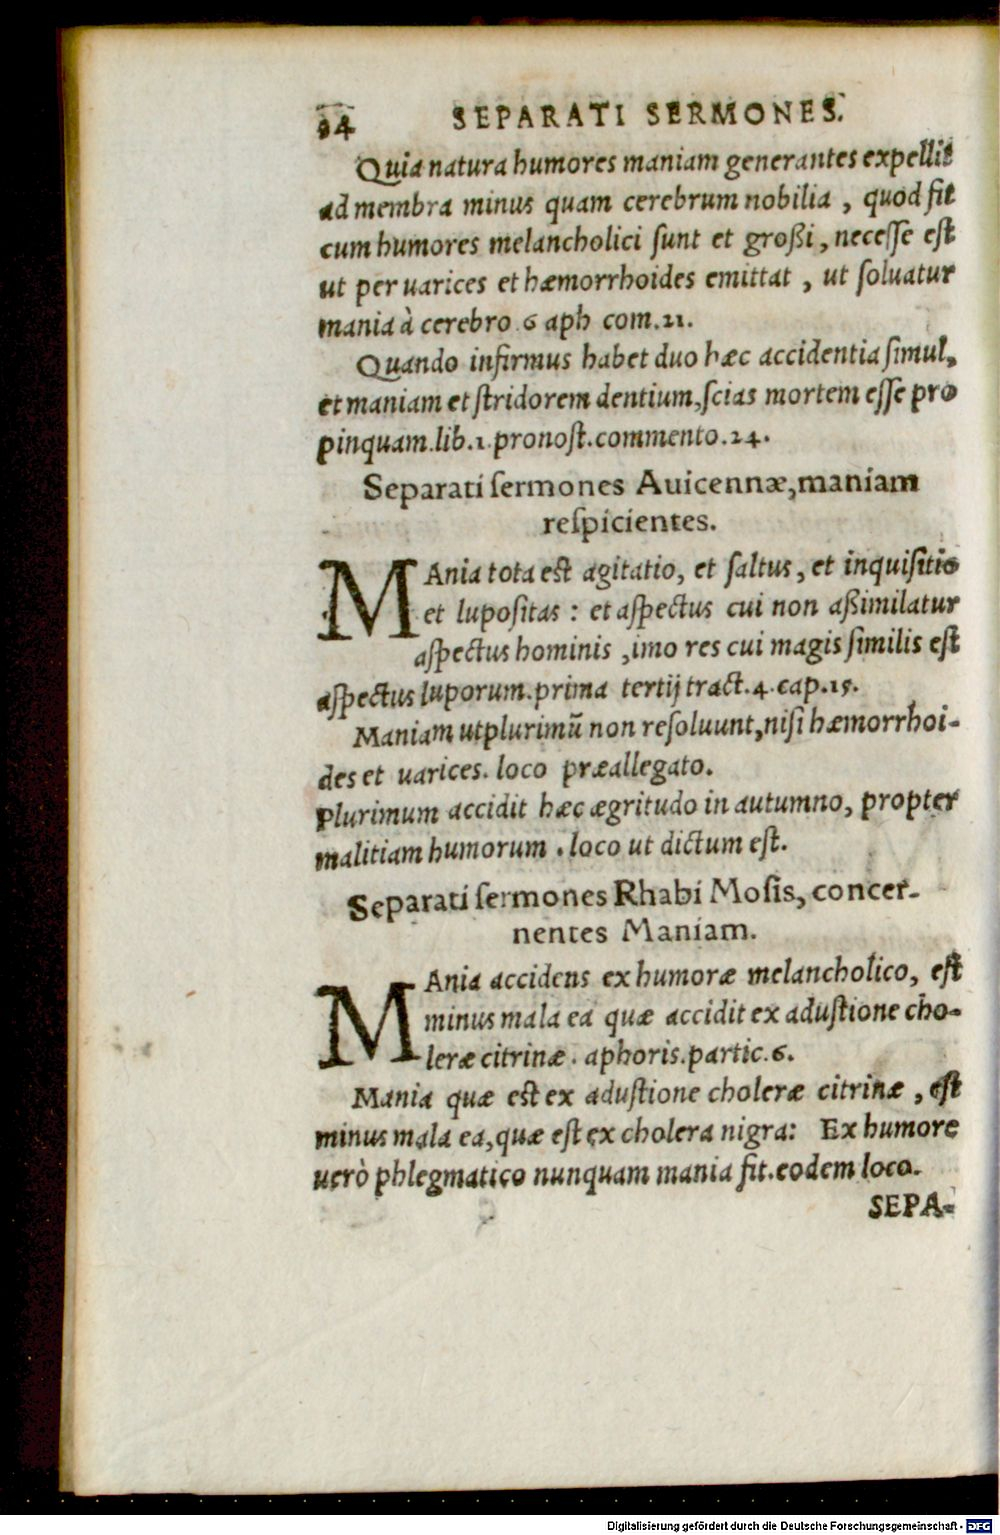 94 SEPARATI SERMONES.
Quia natura humores maniam generantes expellit
ad membra minus quam cerebrum nobilia , quod fit
cum humores melancholici ſunt et großi , neceſſe eſt
ut per uarices et hæmorrhoides emittat , ut ſoluatur
mania à cerebro 6 aph com.21.
Quando infirmus habet duo hæc accidentia ſimul,
et maniam et ſtridorem dentium,ſcias mortem eſſe pro
pinquam.lib.1.pronoſt.commento.24.
Separati ſermones Auicennæ,maniam
reſpicientes.
MAnia tota eſt agitatio, et ſaltus, et inquiſitio
et lupoſitas : et aſpectus cui non aßimilatur
aſpectus hominis ,imo res cui magis ſimilis eſt
aſpectus luporum.prima tertij tract.4.cap.15.
Maniam utplurimũ non reſoluunt,niſi hæmorrhoi-
des et uarices. loco præallegato.
Plurimum accidit hæc ægritudo in autumno, propter
malitiam humorum . loco ut dictum eſt.
Separati ſermones Rhabi Moſis, concer-
nentes Maniam.
MAnia accidens ex humoræ melancholico, eſt
minus mala ea quæ accidit ex aduſtione cho-
leræ citrinæ . aphoris.partic.6.
Mania quæ eſt ex aduſtione choleræ citrinæ , eſt
minus mala ea,quæ eſt ex cholera nigra: Ex humore
uerò phlegmatico nunquam mania fit.eodem loco.
SEPA-
Digitalisierung gefördert durch die Deutsche Forschungsgemeinschaft - DFG